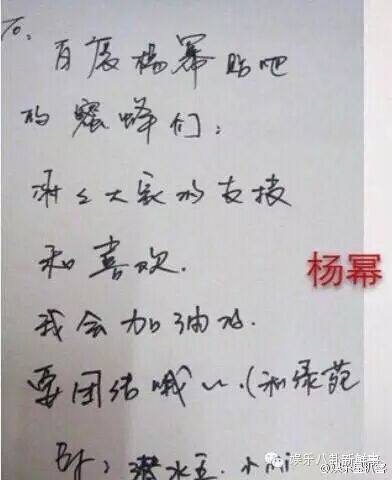 To:
百度杨幂贴吧
的蜜蜂们:
谢谢大家的支持
和喜欢.
我会加油的.
要团结哦~.(和绿苑
杨幂
潜水王.小M
娱乐八卦新鲜串